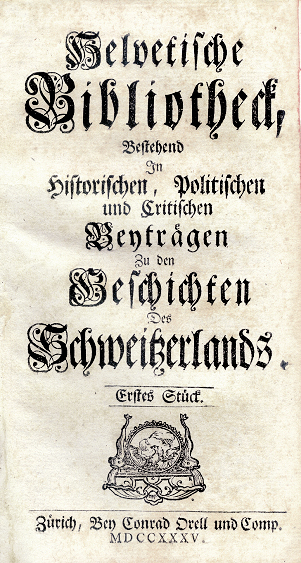 Helvetische
Bibliotheck,
Bestehend
In
Historischen, Politischen
und Critischen
Beyträgen
Zu den
Geschichten
Des
Schweitzerlands.
Erstes Stück.
Zürich, Bey Conrad Orell und Comp.
MDCCXXXV.